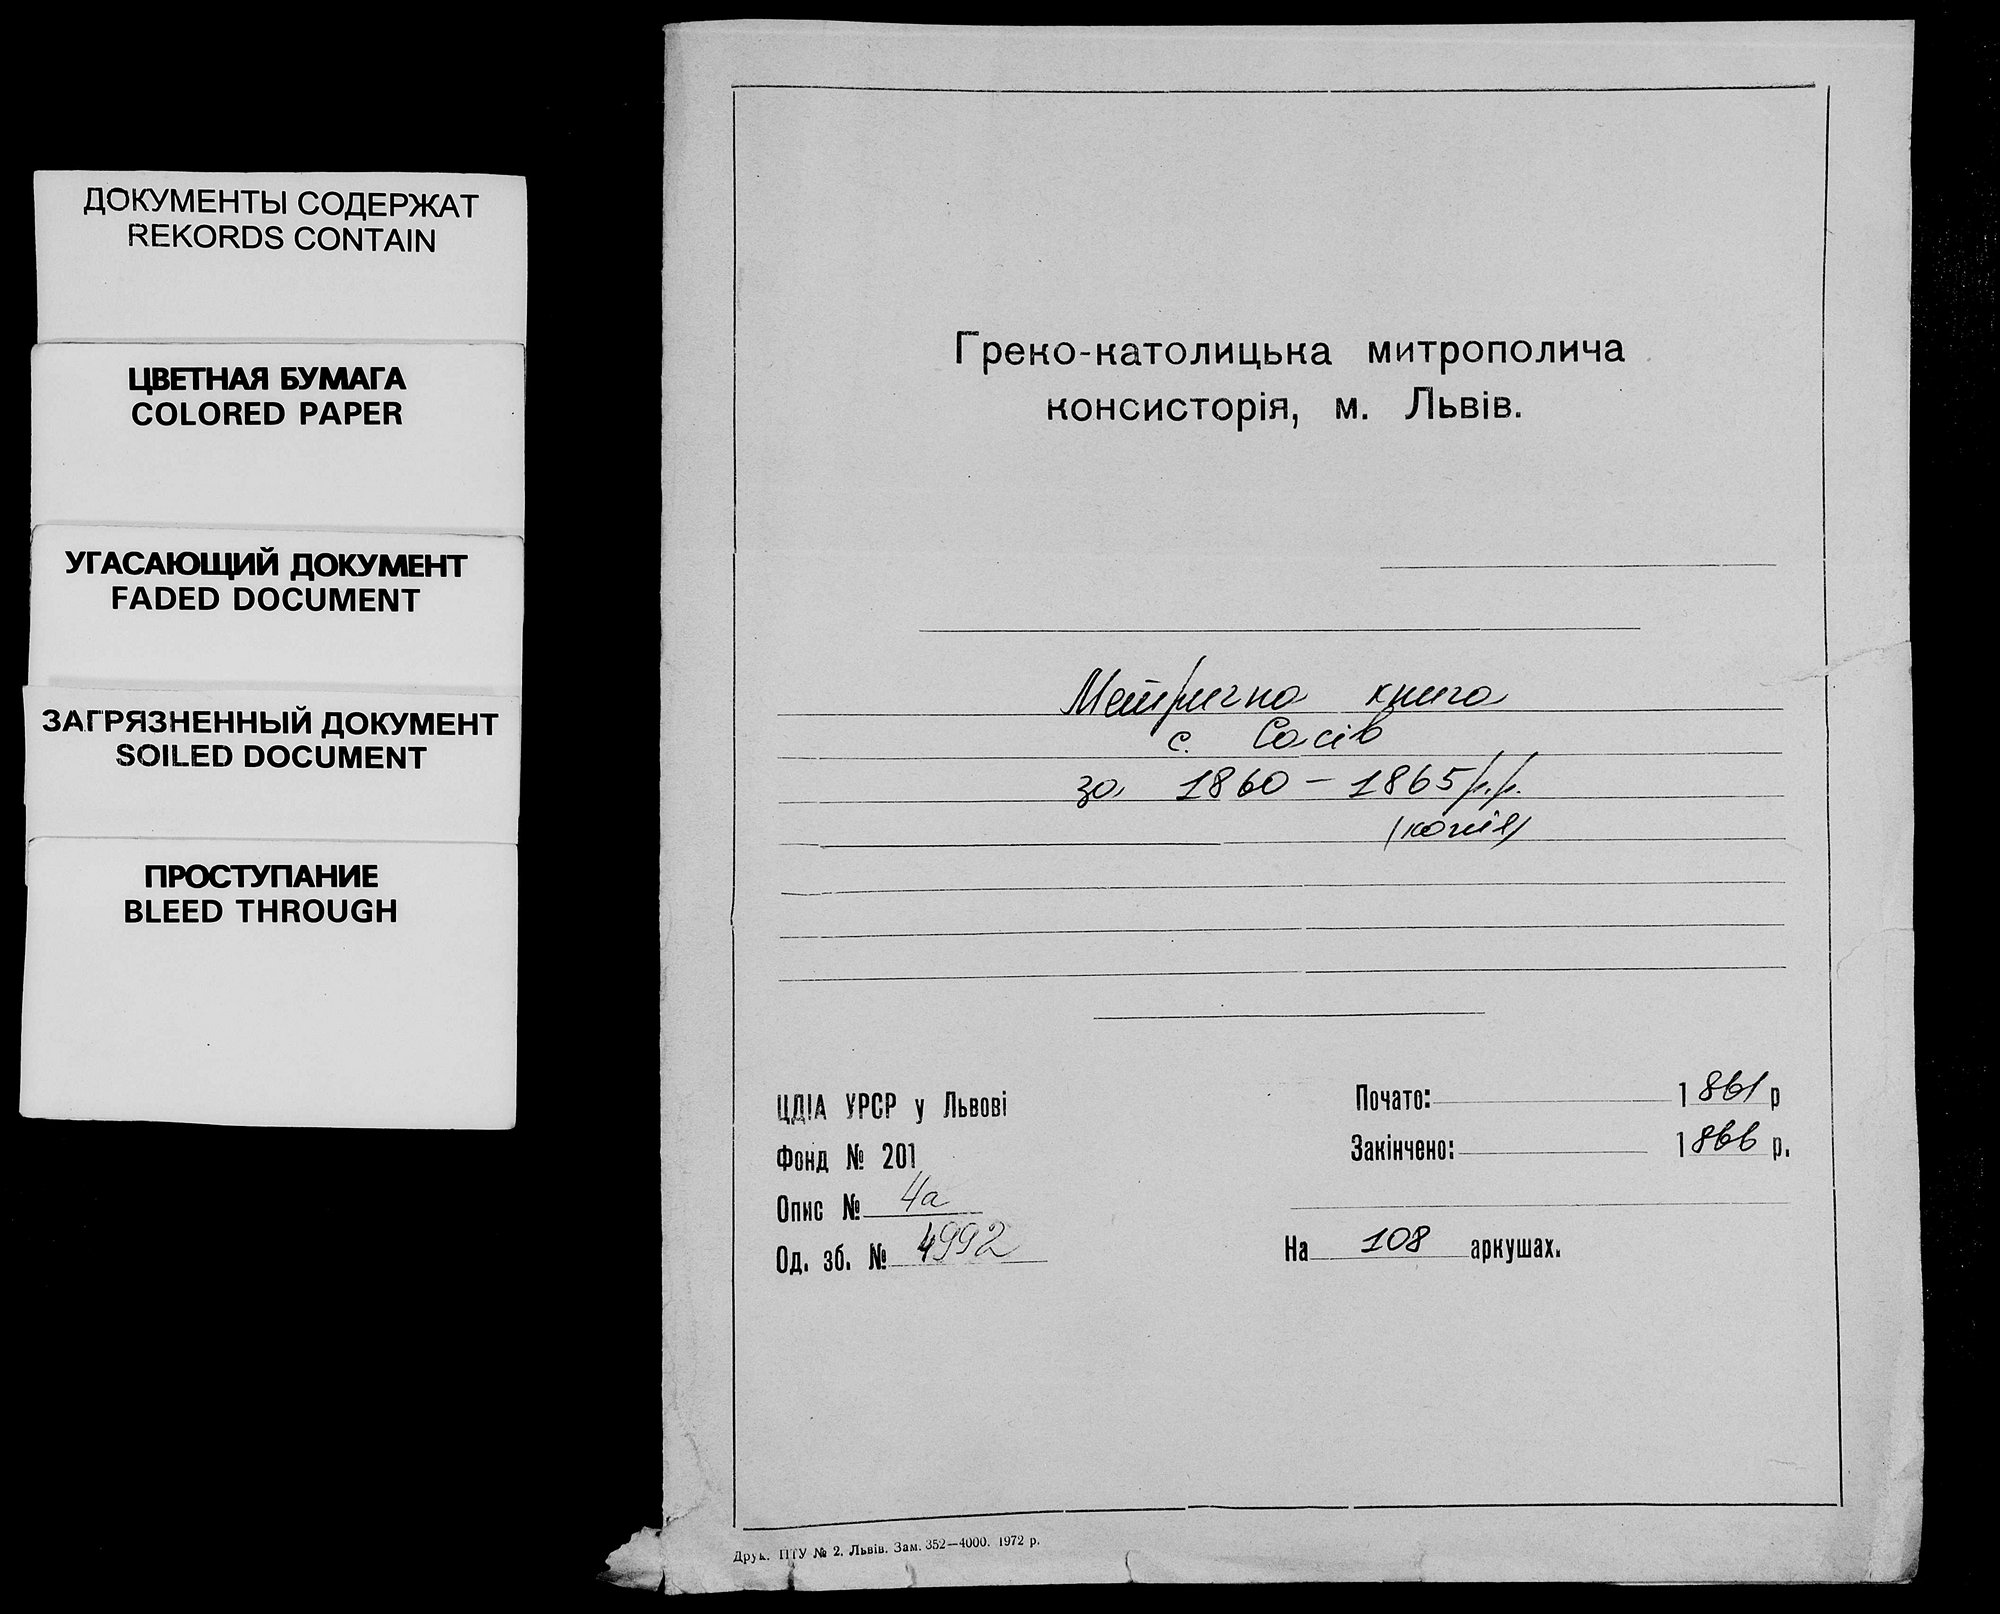 ДОКУМЕНТЫ СОДЕРЖАТ
REKORDS CONTAIN
ЦВЕТНАЯ БУМАГА
COLORED PAPER
УГАСАЮЩИЙ ДОКУМЕНТ
FADED DOCUMENT
ЗАГРЯЗНЕННЫЙ ДОКУМЕНТ
SOILED DOCUMENT
ПРОСТУПАНИЕ
BLEED THROUGH
Греко-католицька митрополича
консисторія, м. Львів.
Метрична книга
с. Сасів
за 1860 – 1865 р.р.
(копія)
ЦДІА УРСР у Львові
Фонд № 201
Опис № 4а
Од. зб. № 4992
Почато: 1861 р
Закінчено: 1866 р.
На 108 аркушах.
Друк. ПТУ № 2, Львів. Зам. 352—4000. 1972 р.